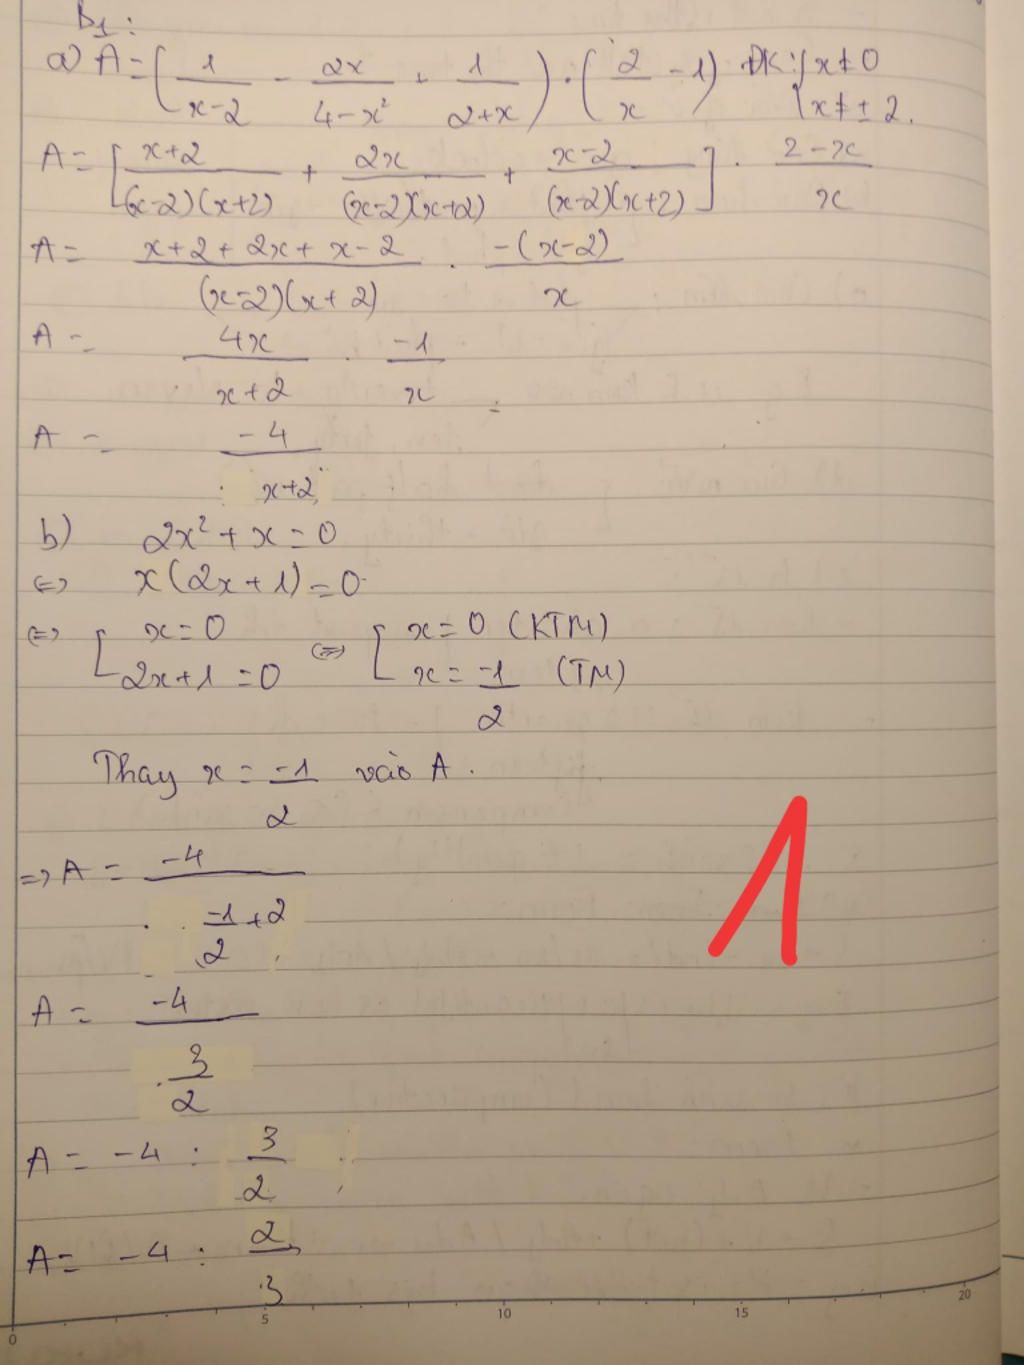 B1:
a) A = ( 1/(x-2) - 2x/(4-x²) + 1/(2+x) ) . ( 2/x - 1 ) ĐK: { x ≠ 0
x ≠ ± 2.
A = [ (x+2)/((x-2)(x+2)) + 2x/((x-2)(x+2)) + (x-2)/((x-2)(x+2)) ] . (2-x)/x
A = (x+2+2x+x-2)/((x-2)(x+2)) . (-(x-2))/x
A = 4x/(x+2) . -1/x
A = -4/(x+2)
b) 2x² + x = 0
⇔ x(2x+1) = 0
⇔ [ x = 0 ⇔ [ x = 0 (KTM)
2x+1 = 0 x = -1/2 (TM)
Thay x = -1/2 vào A.
⇒ A = -4/(-1/2 + 2)
A = -4/(3/2)
A = -4 : 3/2
A = -4 : 2/3
1
0 5 10 15 20